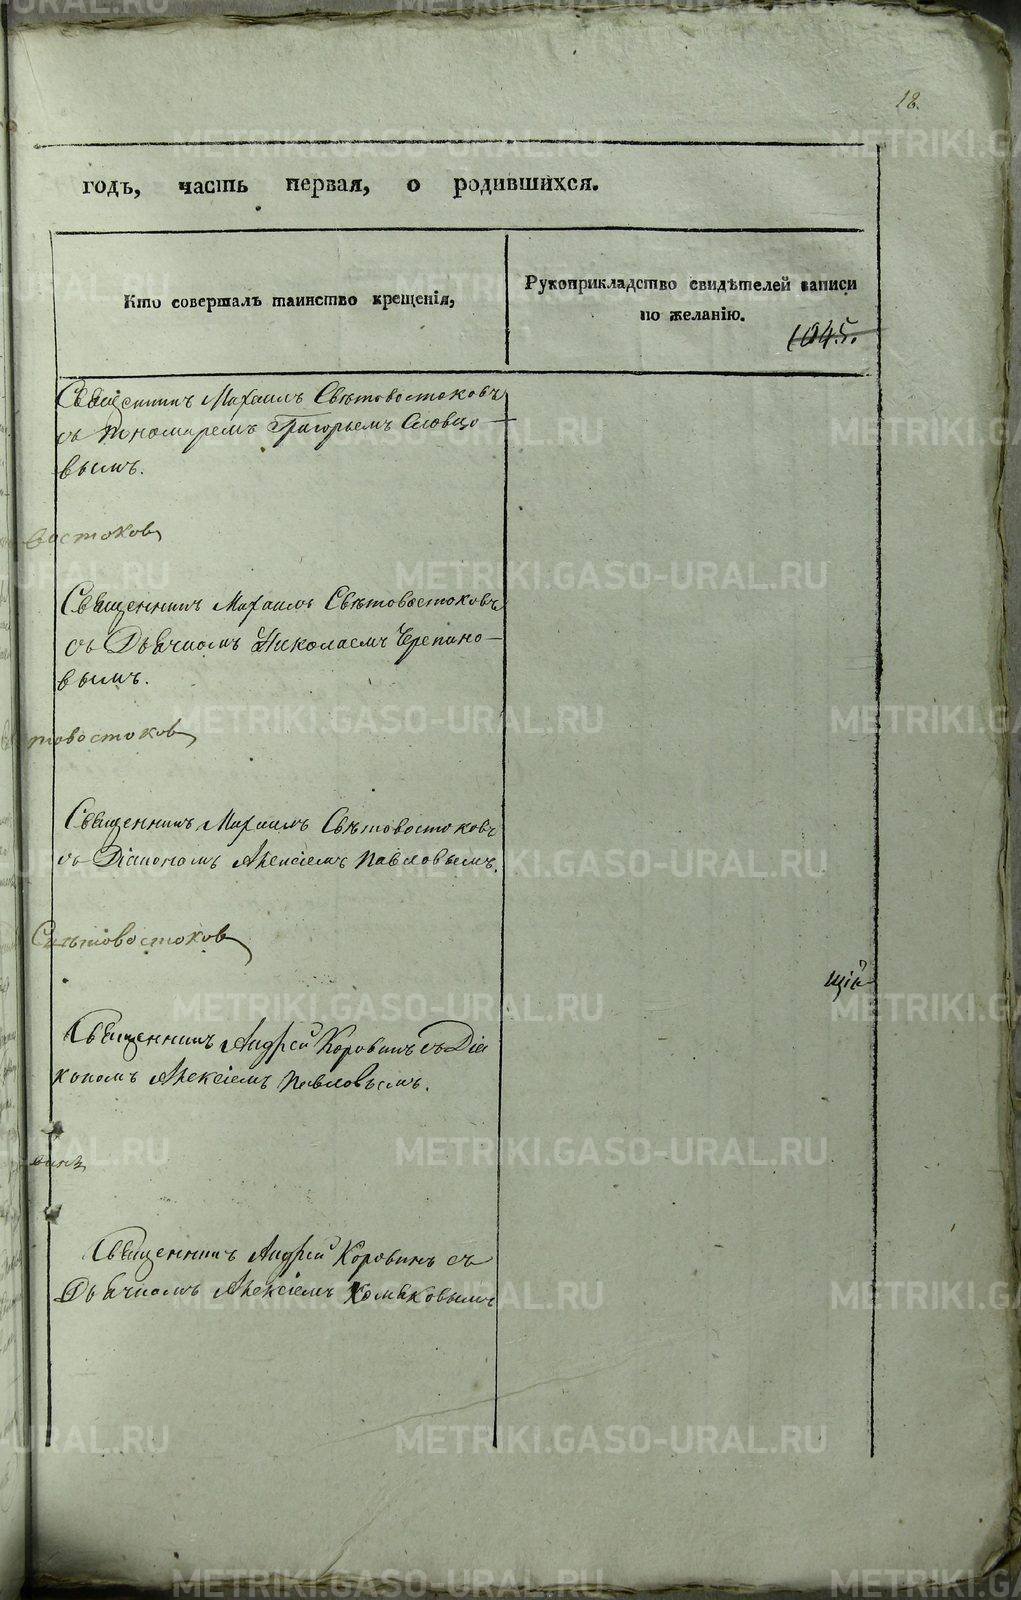 18.
годъ, часть первая, о родившихся.
Кто совершалъ таинство крещенія,
Рукоприкладство свидѣтелей записи
по желанію.
1045.
Священникъ Михаилъ Свѣтовостоковъ
съ Пономаремъ Григорьемъ Словцо-
вымъ.
востоковъ
Священникъ Михаилъ Свѣтовостоковъ
съ Дьячкомъ Николаемъ Черепано-
вымъ.
товостоковъ
Священникъ Михаилъ Свѣтовостоковъ
съ Діакономъ Алексіемъ Павловымъ.
Свѣтовостоковъ
щій
Священникъ Андрей Коровинъ съ Діа
кономъ Алексіемъ Павловымъ.
винъ
Священникъ Андрей Коровинъ съ
Дьячкомъ Алексіемъ
METRIKI.GASO-URAL.RU